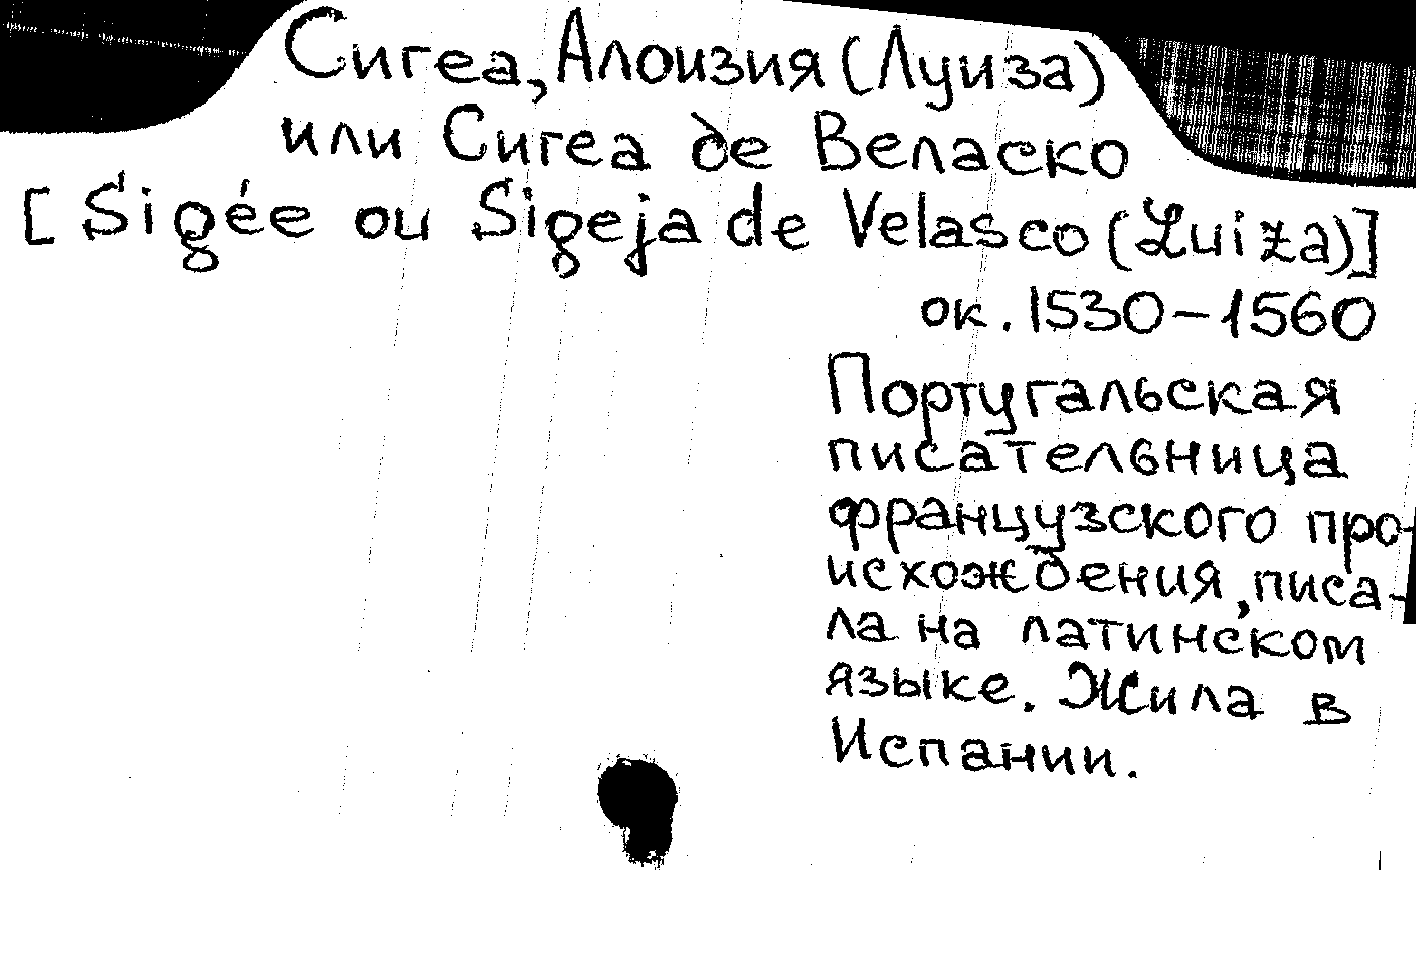 Сигеа, Алоизия (Луиза)
или Сигеа де Веласко
[Sigée ou Sigeja de Velasco (Luiza)]
ок. 1530-1560
Португальская
писательница
французского про-
исхождения, писа-
ла на латинском
языке. Жила в
Испании.